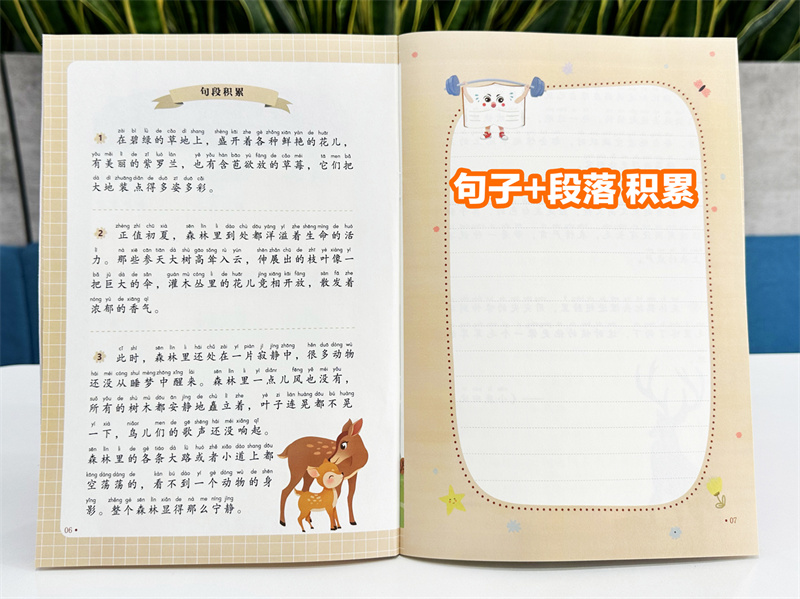 句段积累
zài bì lǜ de cǎo dì shang shèng kāi zhe gè zhǒng xiān yàn de huār
1 在碧绿的草地上，盛开着各种鲜艳的花儿，
yǒu měi lì de zǐ luó lán yě yǒu hán bāo yù fàng de cǎo méi tā men bǎ
有美丽的紫罗兰，也有含苞欲放的草莓，它们把
dà dì zhuāng diǎn de duō zī duō cǎi
大地装点得多姿多彩。
zhèng zhí chū xià sēn lín li dào chù dōu yáng yì zhe shēng mìng de huó
2 正值初夏，森林里到处都洋溢着生命的活
lì nà xiē cān tiān dà shù gāo sǒng rù yún shēn zhǎn chū de zhī yè xiàng yì
力。那些参天大树高耸入云，伸展出的枝叶像一
bǎ jù dà de sǎn guàn mù cóng li de huār jìng xiāng kāi fàng sàn fā zhe
把巨大的伞，灌木丛里的花儿竞相开放，散发着
nóng yù de xiāng qì
浓郁的香气。
cǐ shí sēn lín li hái chǔ zài yí piàn jì jìng zhōng hěn duō dòng wù
3 此时，森林里还处在一片寂静中，很多动物
hái méi cóng shuì mèng zhōng xǐng lái sēn lín li yì diǎnr fēng yě méi yǒu
还没从睡梦中醒来。森林里一点儿风也没有，
suǒ yǒu de shù mù dōu ān jìng de chù lì zhe yè zi lián huàng dōu bú huàng
所有的树木都安静地矗立着，叶子连晃都不晃
yí xià niǎor men de gē shēng hái méi xiǎng qǐ
一下，鸟儿们的歌声还没响起。
sēn lín li de gè tiáo dà lù huò zhě xiǎo dào shang dōu
森林里的各条大路或者小道上都
kōng dàng dàng de kàn bú dào yí gè dòng wù de shēn
空荡荡的，看不到一个动物的身
yǐng zhěng gè sēn lín xiǎn de nà me níng jìng
影。整个森林显得那么宁静。
06
句子+段落 积累
07